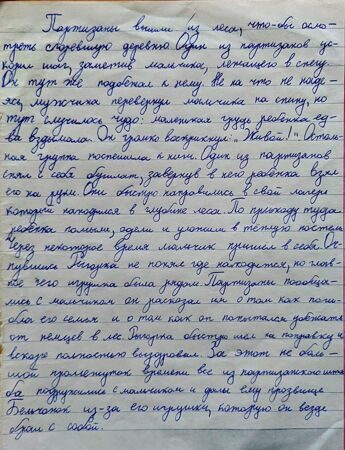 Партизаны вышли из леса, что-бы осмо-
треть сгоревшую деревню. Один из партизанов ус-
корил шаг, заметив мальчика, лежащего в снегу.
Он тут же подбежал к нему. Не на что не наде-
ясь, мужчина перевернул мальчика на спину, но
тут случилось чудо: маленькая грудь ребёнка ед-
ва вздымала. Он громко воскрикнул: „Живой!" Осталь-
ная группа поспешила к ним. Один из партизанов
снял с себя бушлат, завернув в него ребёнка взял
его на руки. Они быстро направились в свой лагерь
который находился в глубине леса. По приходу туда
ребёнка помыли, одели и уложили в тёплую постель
Через некоторое время мальчик пришёл в себя. Оч-
нувшись не понял где находится, но глав-
не его игрушка была рядом. Партизаны пообща-
лись с мальчиком он рассказал им о том как поги-
бла его семья и о том как он попытался убежать
от немцев в лес. быстро шёл на поправку и
вскоре полностью выздоровел. За этот не боль-
шой промежуток времени все из партизанского шта
ба подружились с мальчиком и дали ему прозвище
Бельчонок из-за его игрушки, которую он везде
брал с собой.